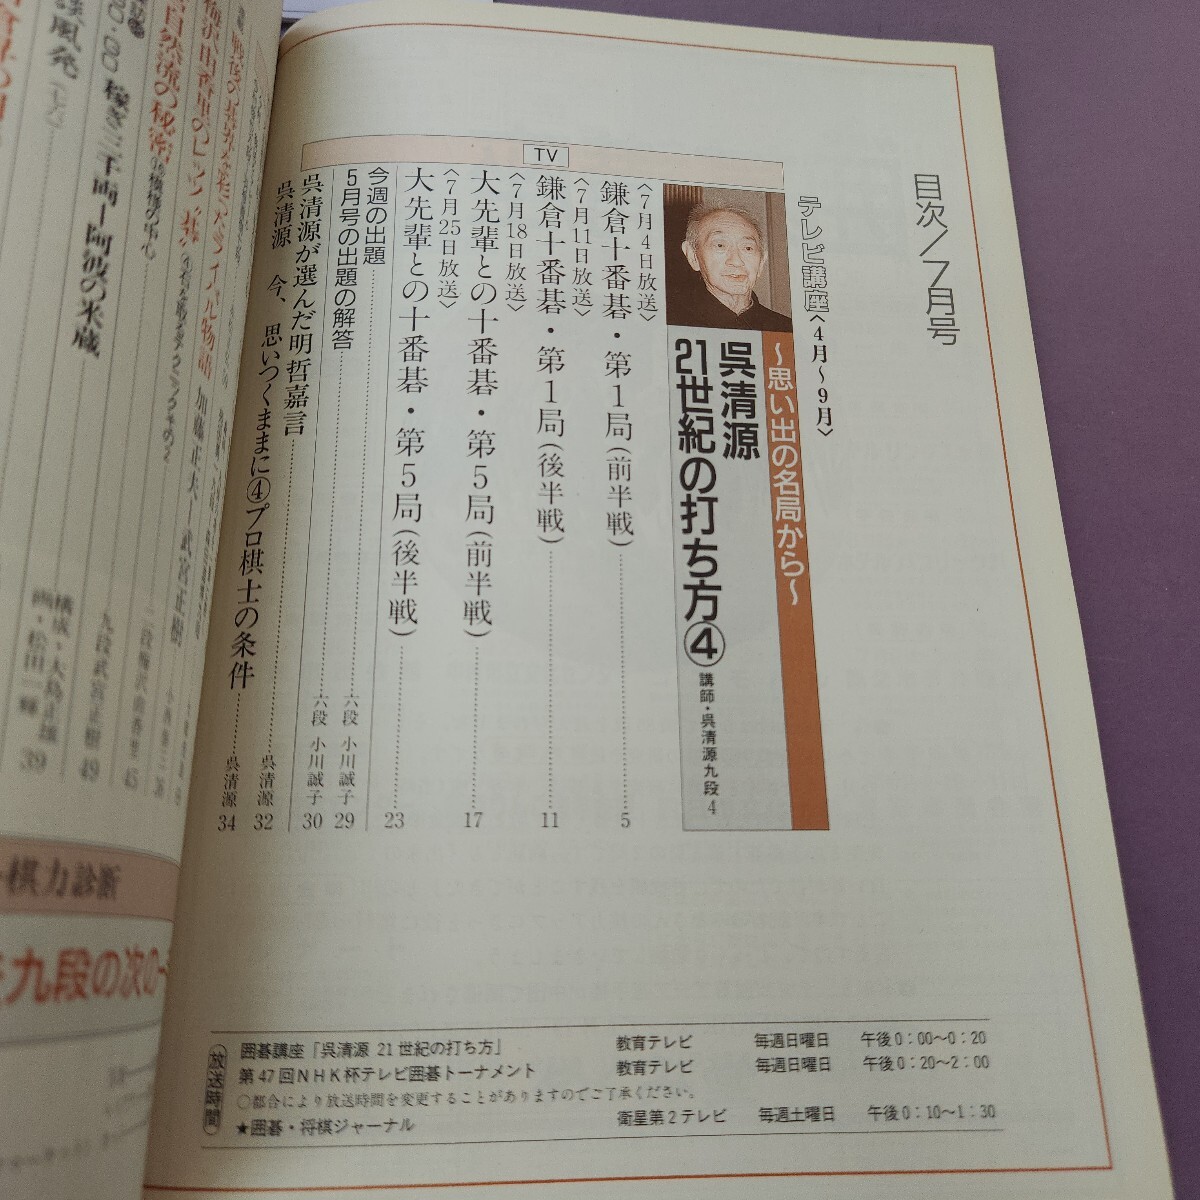 目次／7月号
テレビ講座〈4月～9月〉
～思い出の名局から～
呉清源
21世紀の打ち方④
講師・呉清源九段 4
TV
〈7月4日放送〉
鎌倉十番碁・第1局（前半戦） 5
〈7月11日放送〉
鎌倉十番碁・第1局（後半戦） 11
〈7月18日放送〉
大先輩との十番碁・第5局（前半戦） 17
〈7月25日放送〉
大先輩との十番碁・第5局（後半戦） 23
今週の出題 六段 小川誠子 29
5月号の出題の解答 六段 小川誠子 30
呉清源が選んだ明哲嘉言 呉清源 32
呉清源 今、思いつくままに④プロ棋士の条件 呉清源 34
放送時間
囲碁講座「呉清源 21世紀の打ち方」 教育テレビ 毎週日曜日 午後0：00～0：20
第47回NHK杯テレビ囲碁トーナメント 教育テレビ 毎週日曜日 午後0：20～2：00
○都合により放送時間を変更することがありますのでご了承ください。
★囲碁・将棋ジャーナル 衛星第2テレビ 毎週土曜日 午後0：10～1：30
加藤正夫 武宮正樹
自然流の秘密
九段 武宮正樹 49
稼ぎ三千両―阿波の米蔵
構成・大島正雄
画・松田一輝 39
棋力診断
九段の次の一